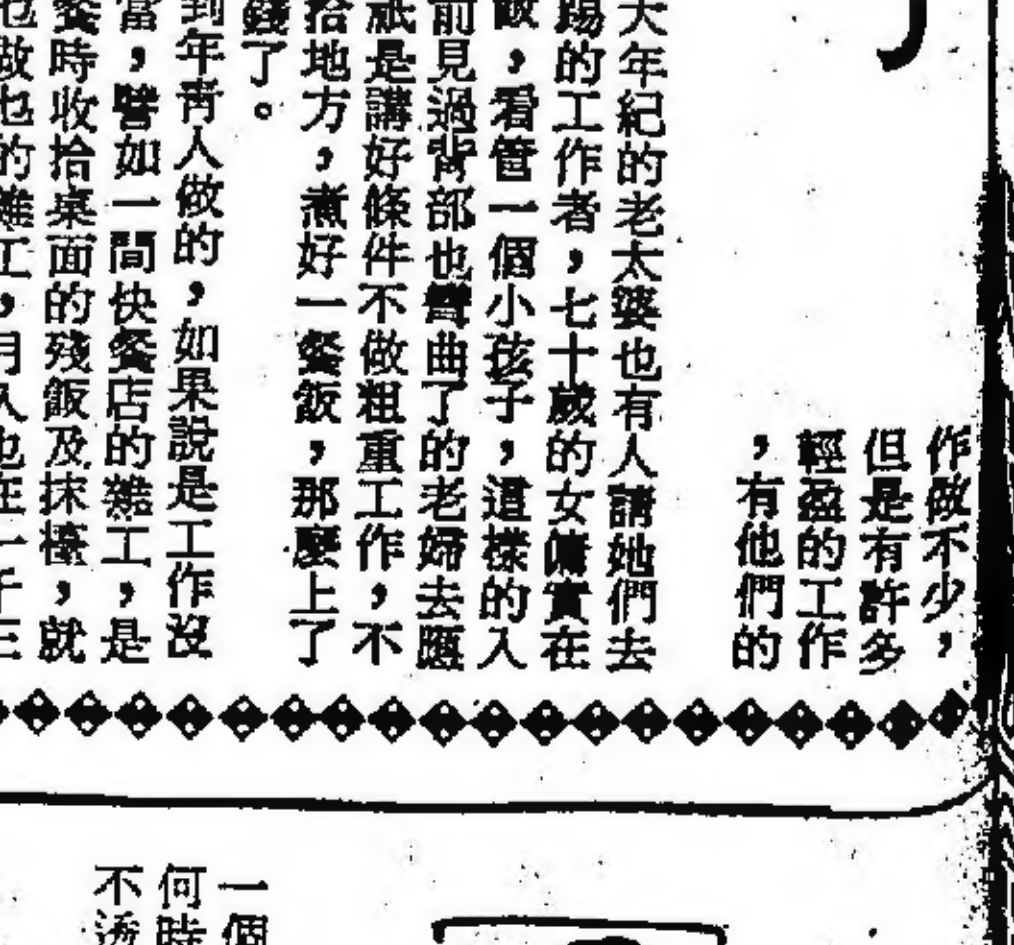 作做不少，
但是有許多
輕盈的工作
，有他們的
大年紀的老太婆也有人請她們去
踢的工作者，七十歲的女傭實在
飯，看管一個小孩子，這樣的人
前見過背部也彎曲了的老婦去應
祇是講好條件不做粗重工作，不
拾地方，煮好一餐飯，那麼上了
錢了。
到年青人做的，如果說是工作沒
當，譬如一間快餐店的雜工，是
餐時收拾桌面的殘飯及抹檯，就
也做也的雜工，月入也在一千三
一個
何時
不透